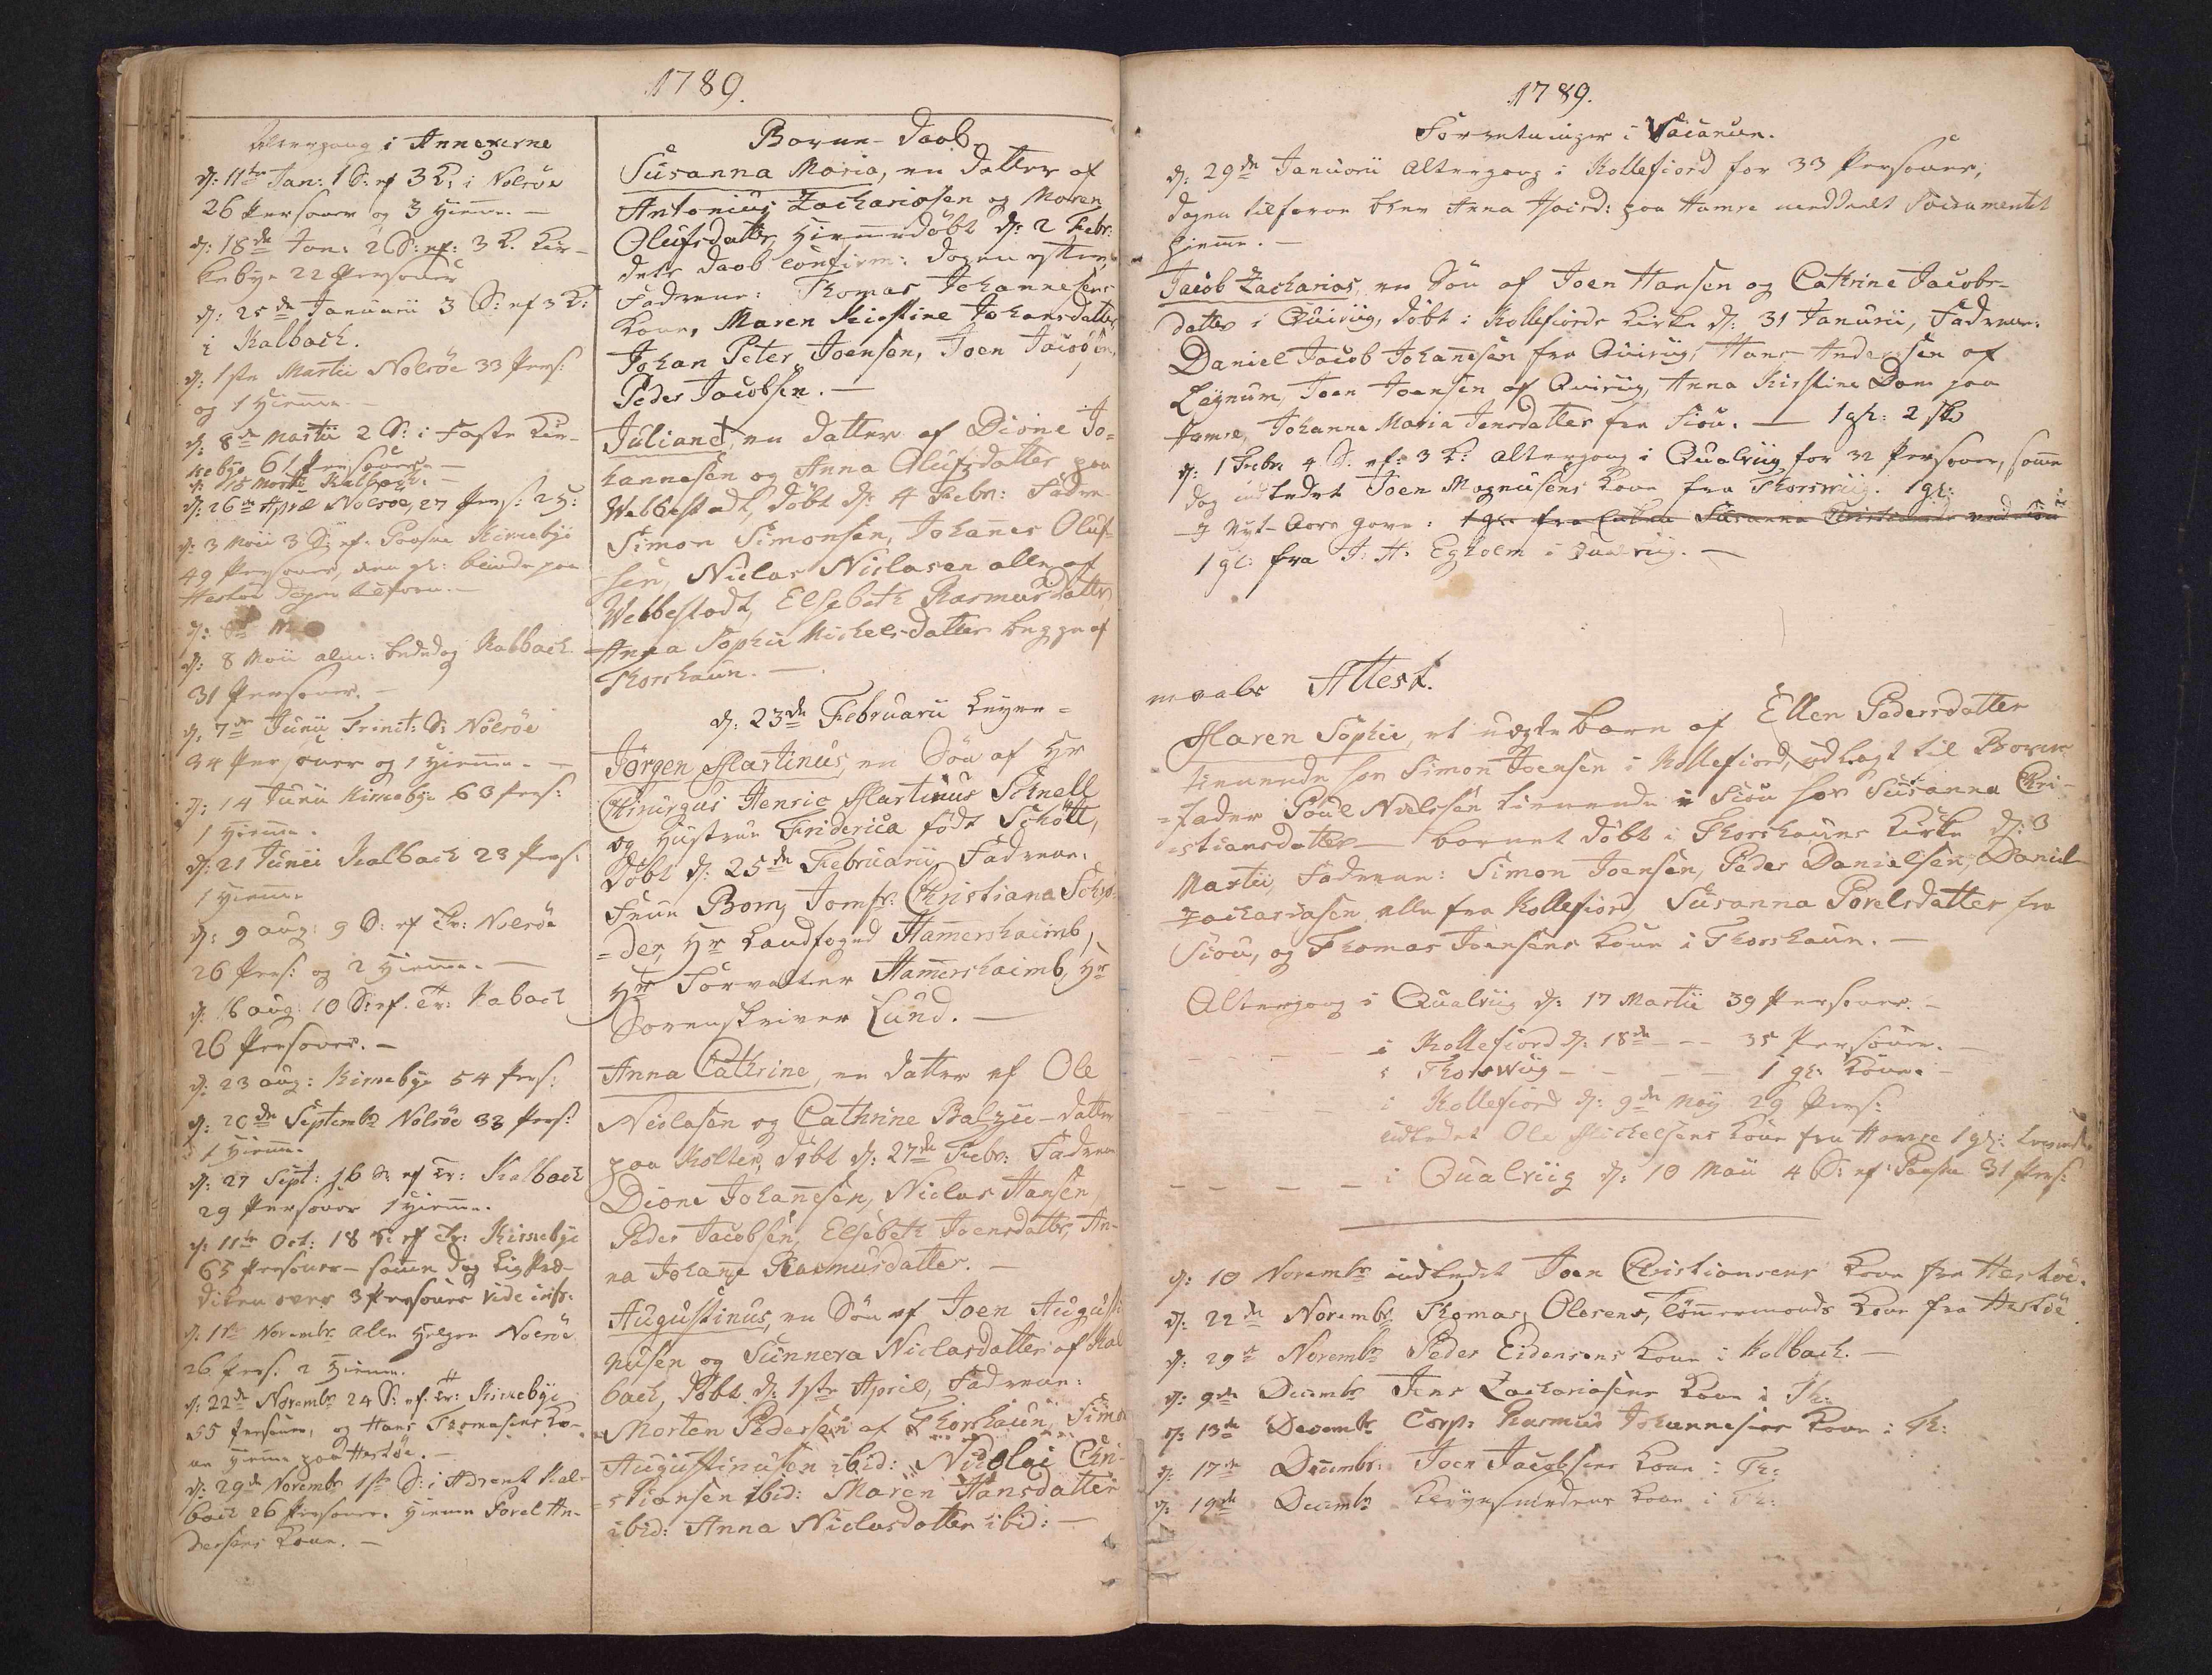 1789.
Altergang i Annexerne
d: 11te Jan: 1 S: ef 3 K: i Nolsöe
26 Personer og 3 Hiemme. —
d: 18de Jan: 2 S: ef: 3 K. Kir-
kebye 22 Personer
d: 25de Januarii 3 S: ef 3 K:
i Kalbach.
d: 1ste Martii Nolsöe 33 Pers:
og 1 Hiemme. —
d: 8de Martii 2 S: i Faste Kir-
kebye 61 Personer. —
d: 15 Martii Kalbach. —
d: 26de April Nolsöe, 27 Pers: 2 H:
d: 3 Maii 3 S: ef. Paaske Kirkebye
49 Personer, den gl: blinde paa
Hestöe dagen tilforn. —
d: 8 Maii alm: Bededag Kalbach
31 Personer. —
d: 7de Junii Trinit: S: Nolsöe
34 Personer og 1 Hiemme. —
d: 14 Junii Kirkebye 63 Pers:
1 Hiemme.
d: 21 Junii Kalbach 23 Pers:
1 Hiemme
d: 9 aug: 9 S: ef Tr: Nolsöe
26 Pers: og 2 Hiemme. —
d. 16 aug: 10 S: ef. Tr: Kabach
26 Personer. —
d: 23 aug: Kirkebye 54 Pers:
d: 20de Septembr Nolsöe 33 Pers:
1 Hiemme.
d: 27 Sept: 16 S: ef Tr: Kalbach
29 Personer 1 Hiemme.
d: 11te Oct: 18 S: ef Tr: Kirkebye
65 Personer — samme dag Ligpræ-
diken over 3 Personer vide infr:
d. 1te Novembr. Alle Helgen Nolsöe
26 Pers. 2 Hiemme.
d: 22de Novembr 24 S: ef. Tr: Kirkebye
55 Personer, og Hans Thomasens Ko-
ne Hiemme paa Hestöe. —
d: 29de Novembr 1ste S: i Advent Kal-
bach 26 Personer. Hiemme Porel An-
dersens Kone. —
Börne-Daab.
Susanna Maria, en Datter af
Antonius Zachariasen og Maren
Olufsdatter, Hiemmedöbt d: 2 Febr:
dets Daab confirm: dagen efter,
Fadderne: Thomas Johannesens
Kone, Maren Kirstine Johansdatter
Johan Peter Joensen, Joen Jacobsen,
Peder Jacobsen. —
Juliane, en Datter af Dione Jo-
hannesen og Anna Olufsdatter paa
Webbestadt, döbt d: 4 Febr: Fadde-
Simon Simonsen, Johanes Oluf-
sen, Niclas Niclasen alle af
Webbestadt, Elsebeth Rasmusdatter
Anna Sophie Michelsdatter begge af
Thorshaun. —
d: 23de Februarii
Jörgen Martinus, en Sön af Hr
Chirurgus Henric Martinus Schnell
og Hustrue Friderica födt Schött,
Döbt d: 25de Februarii Fadderne:
Frue Born, Jomfr: Christiana Schrö-
=der, Hr Landfoged Hamershaimb,
Hr Forvalter Hamershaimb, Hr
Sorenskriver Lund. —
Anna Cathrine, en Datter af Ole
Niclasen og Cathrine Balzer-datter
paa Kolter, döbt d: 27de Febr: Fadderne
Dione Johanesen, Niclas Hansen,
Peder Jacobsen, Elsebeth Joensdatter, An-
na Johane Rasmusdatter. —
Augustinus, en Sön af Joen Augusti-
nusen og Sunneva Niclasdatter af Kal
bach, Döbt d: 1ste April, Fadderne:
Morten Pedersen af Thorshaun, Simon
Augustinusen ibid: Nicolai Chri-
=stiansen ibid: Maren Hansdatter
ibid: Anna Niclasdotter ibid: —
1789.
Forretninger i Vacancen.
d: 29de Januarii Altergang i Kollefiord for 33 Personer,
dagen tilforne blev Anna Hsird: paa Hamre meddeelt Sacramentet
hiemme. —
Jacob Zacharias, en Sön af Joen Hansen og Cathrine Jacobs-
datter i Quiviig, döbt i Kollefiords Kirke d: 31 Januarii, Fadderne:
Daniel Jacob Johanesen fra Quiviig, Hans Andersen af
Leynum, Joen Joensen af Quiviig, Anna Kirstine Dam paa
Hamre, Johanne Maria Jensdatter fra Siou. — 1 gl: 2 sk
d: 1 Febr 4 S. ef: 3 K: Altergang i Qualviig for 32 Personer, samme
dag indledet Joen Magnusens Kone fra Thorswiig. 1 gl:
I Nyt-Aars gave: 1 gl: fra Enken Susanna Christiansd: ved Siou
1 gl: fra J. H. Egholm i Qualviig. —
maabs Attest.
Maren Sophie, et uægte barn af Ellen Pedersdatter
tienende hos Simon Joensen i Kollefiord, udlagt til Barne
=fader Poul Nielssen tienende i Siou hos Susanna Chri-
=stiansdatter — barnet döbt i Thorshauns Kirke d: 3
Martii, Fadderne: Simon Joensen, Peder Danielsen, Daniel
Zachariasen alle fra Kollefiord, Susanna Porelsdatter fra
Siou, og Thomas Joensens Kone i Thorshaun. —
Altergang i Qualviig d: 17 Martii 39 Personer. —
— — — — i Kollefiord d: 18de — — 35 Personer. —
i Thorswiig — — — — 1 gl: Kone. —
i Kollefiord d: 9de Maij 29 Pers:
indledet Ole Michelsens Kone fra Hamre 1 gl:
— — — — i Qualviig d: 10 Maii 4 S: ef: Paaske 31 Pers:
d: 10 Novembr indledet Joen Christiansens Kone fra Hestöe.
d: 22de Novembr Thomas Olesens, Tömmermands Kone fra Hestöe
d: 29de Novembr Peder Eidensens Kone i Kalbach. —
d: 9de Decembr Jens Zachariasens Kone i Th:
d: 13de Decembr Corp: Rasmus Johannesens Kone i Th:
d: 17de Decembr: Joen Jacobsens Kone i Th:
d: 19de Decembr Kone i Th: